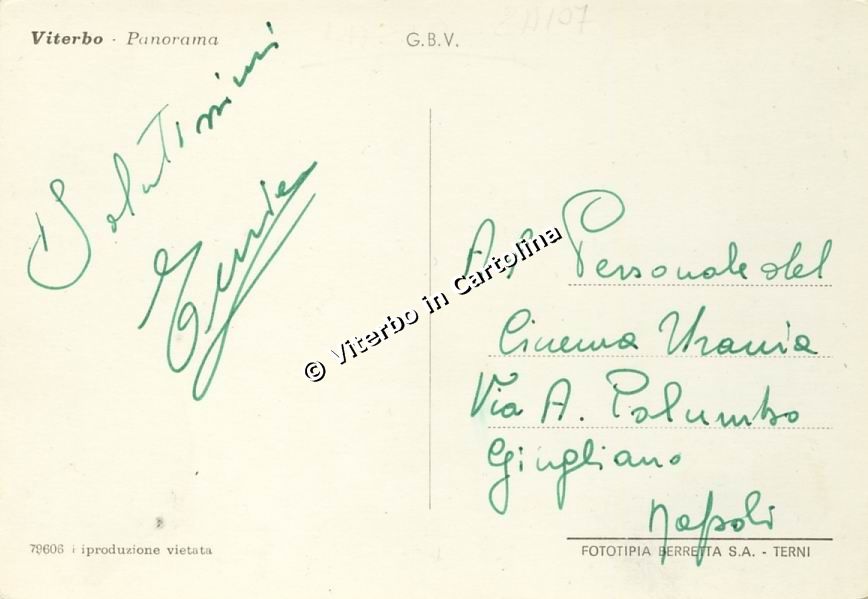 Viterbo - Panorama
G.B.V.
Salutissimi
© Viterbo in Cartolina
Al Personale del
Cinema Urania
Via A. Palumbo
Giugliano
Napoli
79606 iproduzione vietata
FOTOTIPIA BERRETTA S.A. - TERNI